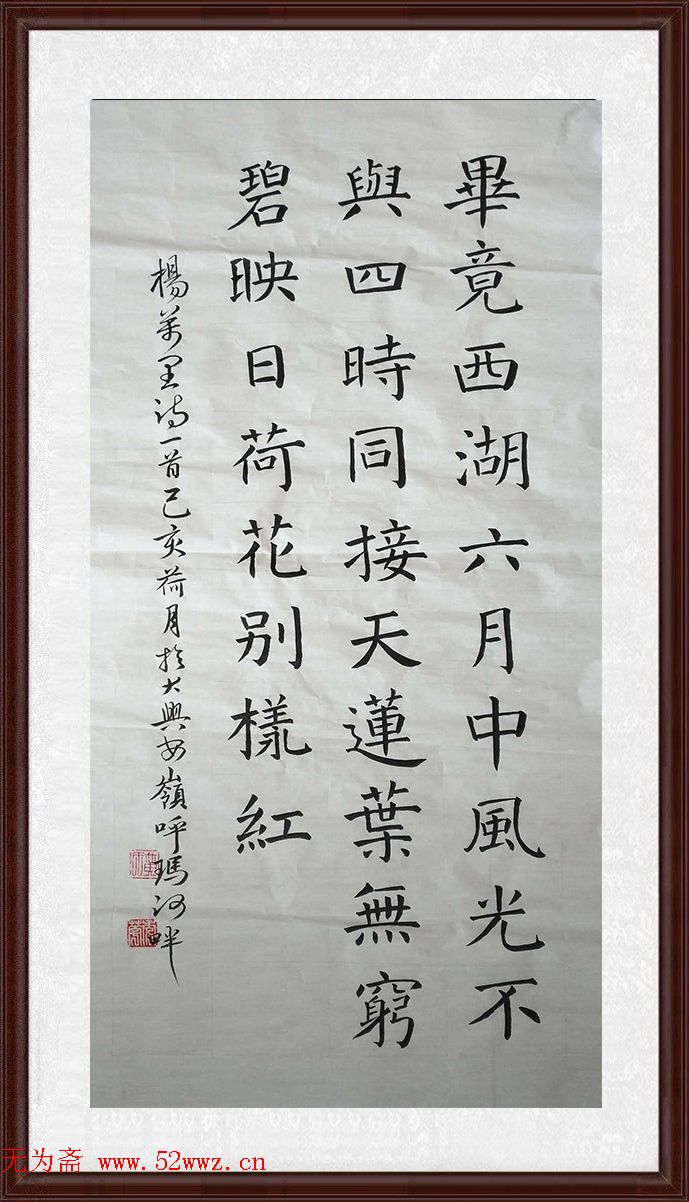 畢竟西湖六月中風光不
與四時同接天蓮葉無窮
碧映日荷花别樣紅
楊萬里诗一首己亥荷月於大興安嶺呼瑪河畔
无为斋 www.52wwz.cn